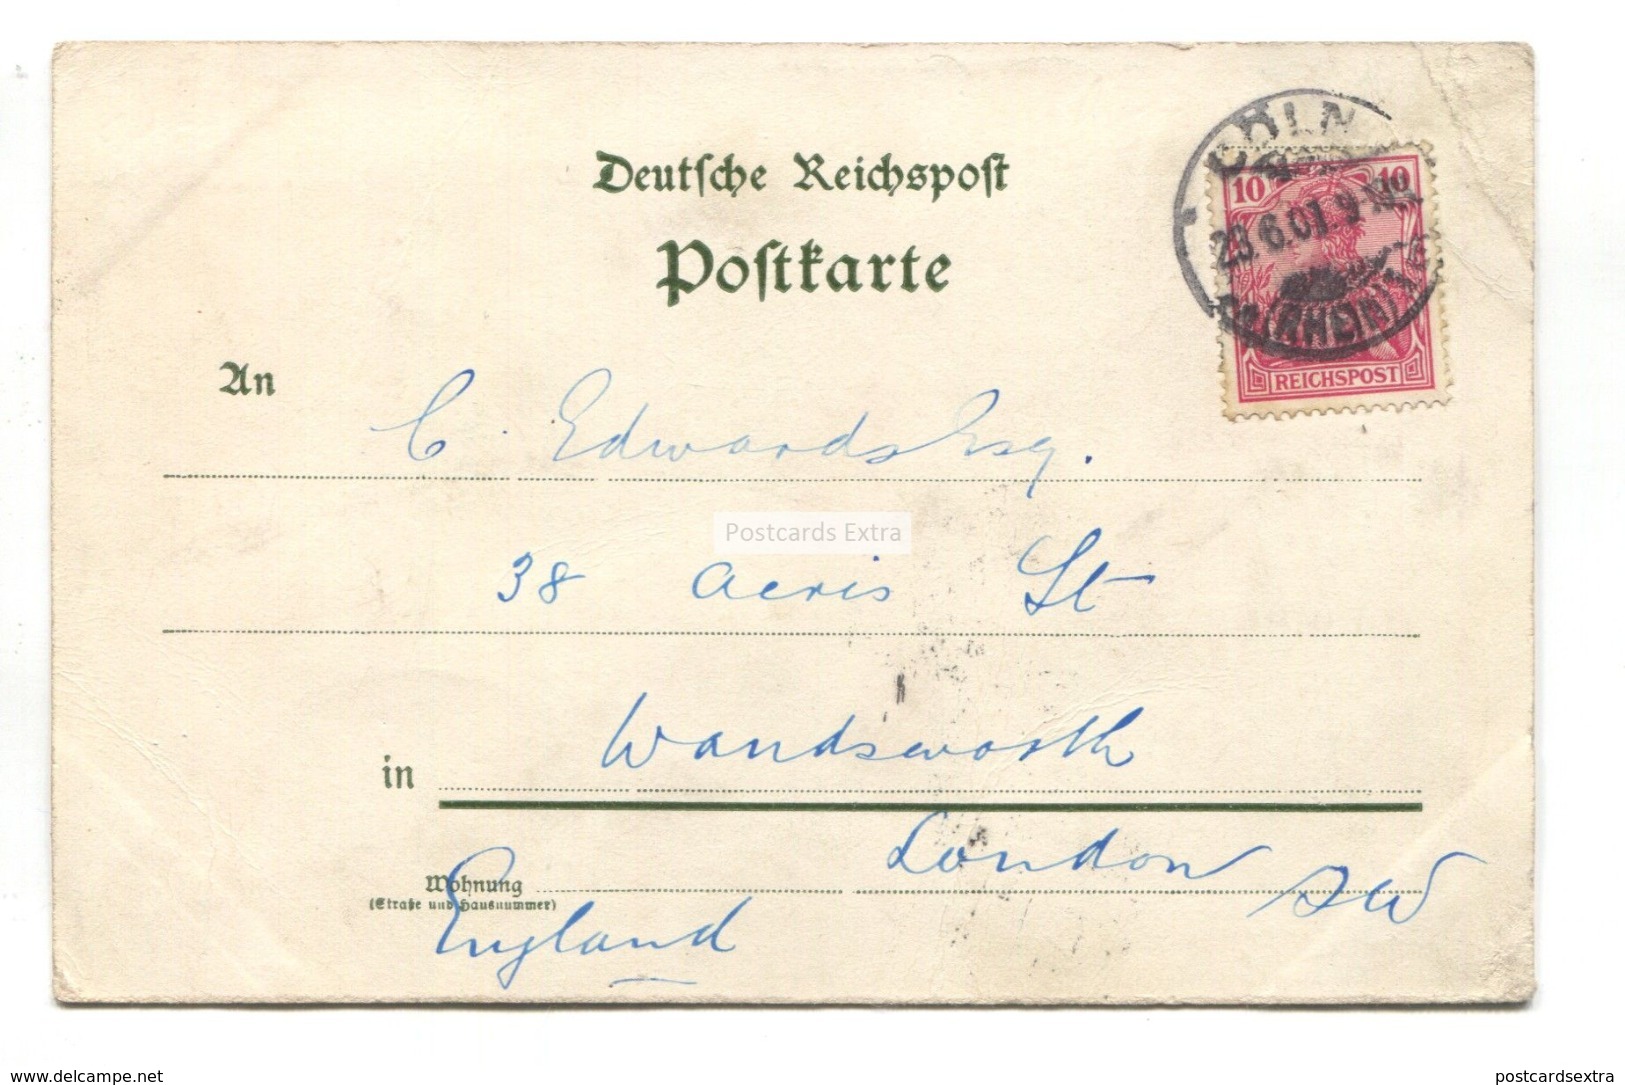 CÖLN
Deutsche Reichspost
10 10
23.6.01.9-10
Postkarte
(RHEIN)
REICHSPOST
An
C. Edwards Esq.
Postcards Extra
38 Acris St
in
Wandsworth
London SW
Wohnung
(Straße und Hausnummer)
England
www.delcampe.net
postcardsextra